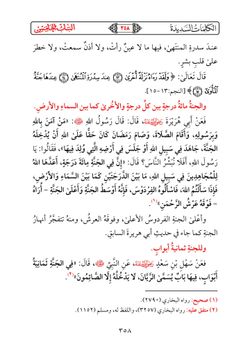 الكلمات السديدة
٣٥٨
عند سدرة المنتهى، فيها ما لا عينٌ رأتْ، ولا أذنٌ سمعتْ، ولا خطرَ
على قلبِ بشرٍ.
قال تعالى: ﴿وَلَقَدْ رَءَاهُ نَزْلَةً أُخْرَىٰ ۝ عِندَ سِدْرَةِ الْمُنتَهَىٰ ۝ عِندَهَا جَنَّةُ
الْمَأْوَىٰ﴾ [النجم:١٣-١٥].
والجنةُ مائةُ درجةٍ بين كلِّ درجةٍ والأخرى كما بين السماءِ والأرضِ.
فعنْ أبي هُرَيْرَةَ، قَالَ: قَالَ رَسُولُ اللهِ: «مَنْ آمَنَ بِاللهِ
وَبِرَسُولِهِ، وَأَقَامَ الصَّلَاةَ، وَصَامَ رَمَضَانَ كَانَ حَقًّا عَلَى اللهِ أَنْ يُدْخِلَهُ
الْجَنَّةَ، جَاهَدَ فِي سَبِيلِ اللهِ أَوْ جَلَسَ فِي أَرْضِهِ الَّتِي وُلِدَ فِيهَا»، فَقَالُوا: يَا
رَسُولَ اللهِ، أَفَلَا نُبَشِّرُ النَّاسَ؟ قَالَ: «إِنَّ فِي الْجَنَّةِ مِائَةَ دَرَجَةٍ، أَعَدَّهَا اللهُ
لِلْمُجَاهِدِينَ فِي سَبِيلِ اللهِ، مَا بَيْنَ الدَّرَجَتَيْنِ كَمَا بَيْنَ السَّمَاءِ وَالْأَرْضِ،
فَإِذَا سَأَلْتُمُ اللهَ، فَاسْأَلُوهُ الفِرْدَوْسَ، فَإِنَّهُ أَوْسَطُ الْجَنَّةِ وَأَعْلَى الْجَنَّةِ - أُرَاهُ
- فَوْقَهُ عَرْشُ الرَّحْمَنِ»(١).
وأعلى الجنةِ الفردوسُ الأعلى، وفوقَهُ العرشُ، ومنهُ تتفجَّرُ أنهارُ
الجنةِ كما جاء في حديثِ أبي هريرةَ السابقِ.
وللجنةِ ثمانيةُ أبوابٍ.
فعنْ سَهْلِ بْنِ سَعْدٍ، عَنِ النَّبِيِّ، قَالَ: «فِي الْجَنَّةِ ثَمَانِيَةُ
أَبْوَابٍ، فِيهَا بَابٌ يُسَمَّى الرَّيَّانَ، لَا يَدْخُلُهُ إِلَّا الصَّائِمُونَ»(٢).
(١) صحيح: رواه البخاري (٢٧٩٠).
(٢) متفق عليه: رواه البخاري (٣٢٥٧)، واللفظ له، ومسلم (١١٥٢).
٣٥٨